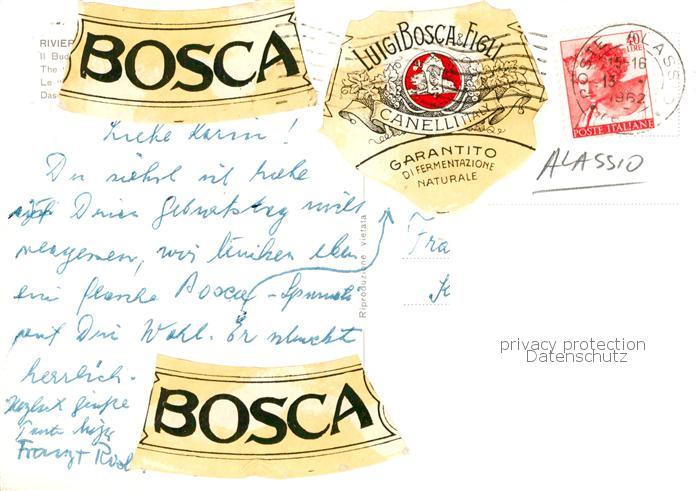 BOSCA
RIVIER
Il Bud
The
Le
Das
LUIGI BOSCA & FIGLI
CANELLI ITALY
GARANTITO
DI FERMENTAZIONE
NATURALE
40
LIRE
15-16
13
1962
ALASSIO
POSTE ITALIANE
ALASSIO
Liebe Karin!
Du siehst ich habe
Deinen Geburtstag nicht
vergessen, wir trinken eben
eine Flasche Bosca - Spumante
auf Dein Wohl. Er schmeckt
herrlich.
Herzlichst grüße
Tante
Franz + Rosl
Riproduzione vietata
Fra
BOSCA
privacy protection
Datenschutz